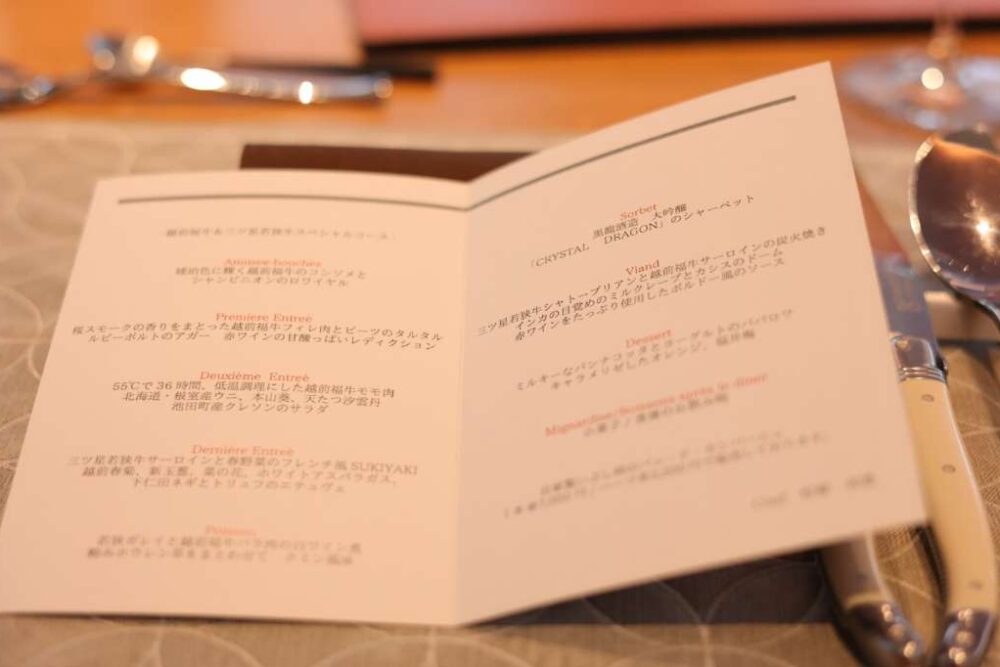 越前福牛&三ツ星若狭牛スペシャルコース
Amusee-bouchès
琥珀色に輝く越前福牛のコンソメと
シャンピニオンのロワイヤル
Première Entreè
桜スモークの香りをまとった越前福牛フィレ肉とビーツのタルタル
ルビーポルトのアガー 赤ワインの甘酸っぱいレディクション
Deuxième Entreè
55℃で36時間、低温調理にした越前福牛モモ肉
北海道・根室産ウニ、本山葵、天たつ汐雲丹
池田町産クレソンのサラダ
Dernière Entreè
三ツ星若狭牛サーロインと春野菜のフレンチ風SUKIYAKI
越前春菊、新玉葱、菜の花、ホワイトアスパラガス、
下仁田ネギとトリュフのエテュヴェ
Poisson
若狭ガレイと越前福牛バラ肉の白ワイン煮
Sorbet
黒龍酒造 大吟醸
「CRYSTAL DRAGON」のシャーベット
Viand
三ツ星若狭牛シャトーブリアンと越前福牛サーロインの炭火焼き
インカの目覚めのミルクレープとカシスのドーム
赤ワインをたっぷり使用したボルドー風のソース
Dessert
ミルキーなパンナコッタとヨーグルトのババロワ
キャラメリゼしたオレンジ、福井梅
Mignardise/Boissons après le dîner
小菓子/食後のお飲み物